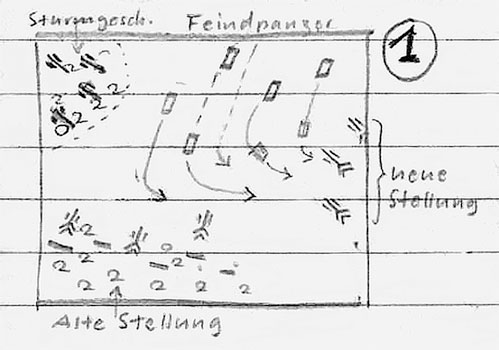 Sturmgesch. Feindpanzer
1
2
2
2
2
2
0
neue
Stellung
2
2
2
2
2
2
2
2
Alte Stellung